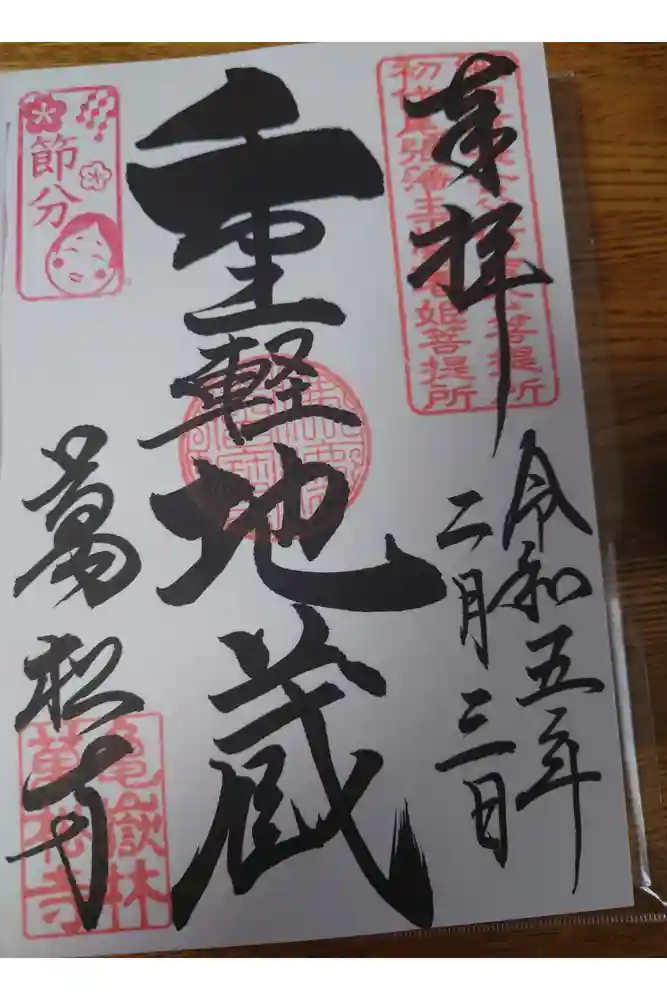 奉拝
初代尾張藩主
姫菩提所
菩提所
令和五年
二月三日
重軽地蔵
節分
萬松寺
亀嶽林
萬松寺